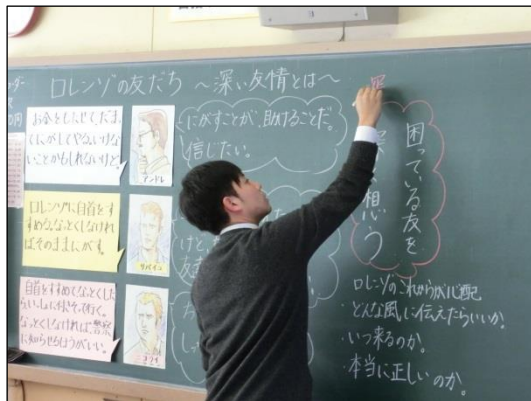 ロレンゾの友だち 〜深い友情とは〜
お金をもたせて、だま
ってにがしてやる。いけな
いことかもしれないけど。
アンドレ
にがすことが、助けることだ。
信じたい。
ロレンゾに自首をす
すめる。なっとくしなけれ
ばそのままにがす。
サバイユ
けど、
自首をすすめてなっとくした
らいっしょに付きそって行く。
なっとくしなければ警察
に知らせるほうがいい。
困っている友を
想う
ロレンゾのこれからが心配
・どんな風に伝えたらいいか。
・いつ来るのか。
・本当に正しいのか。